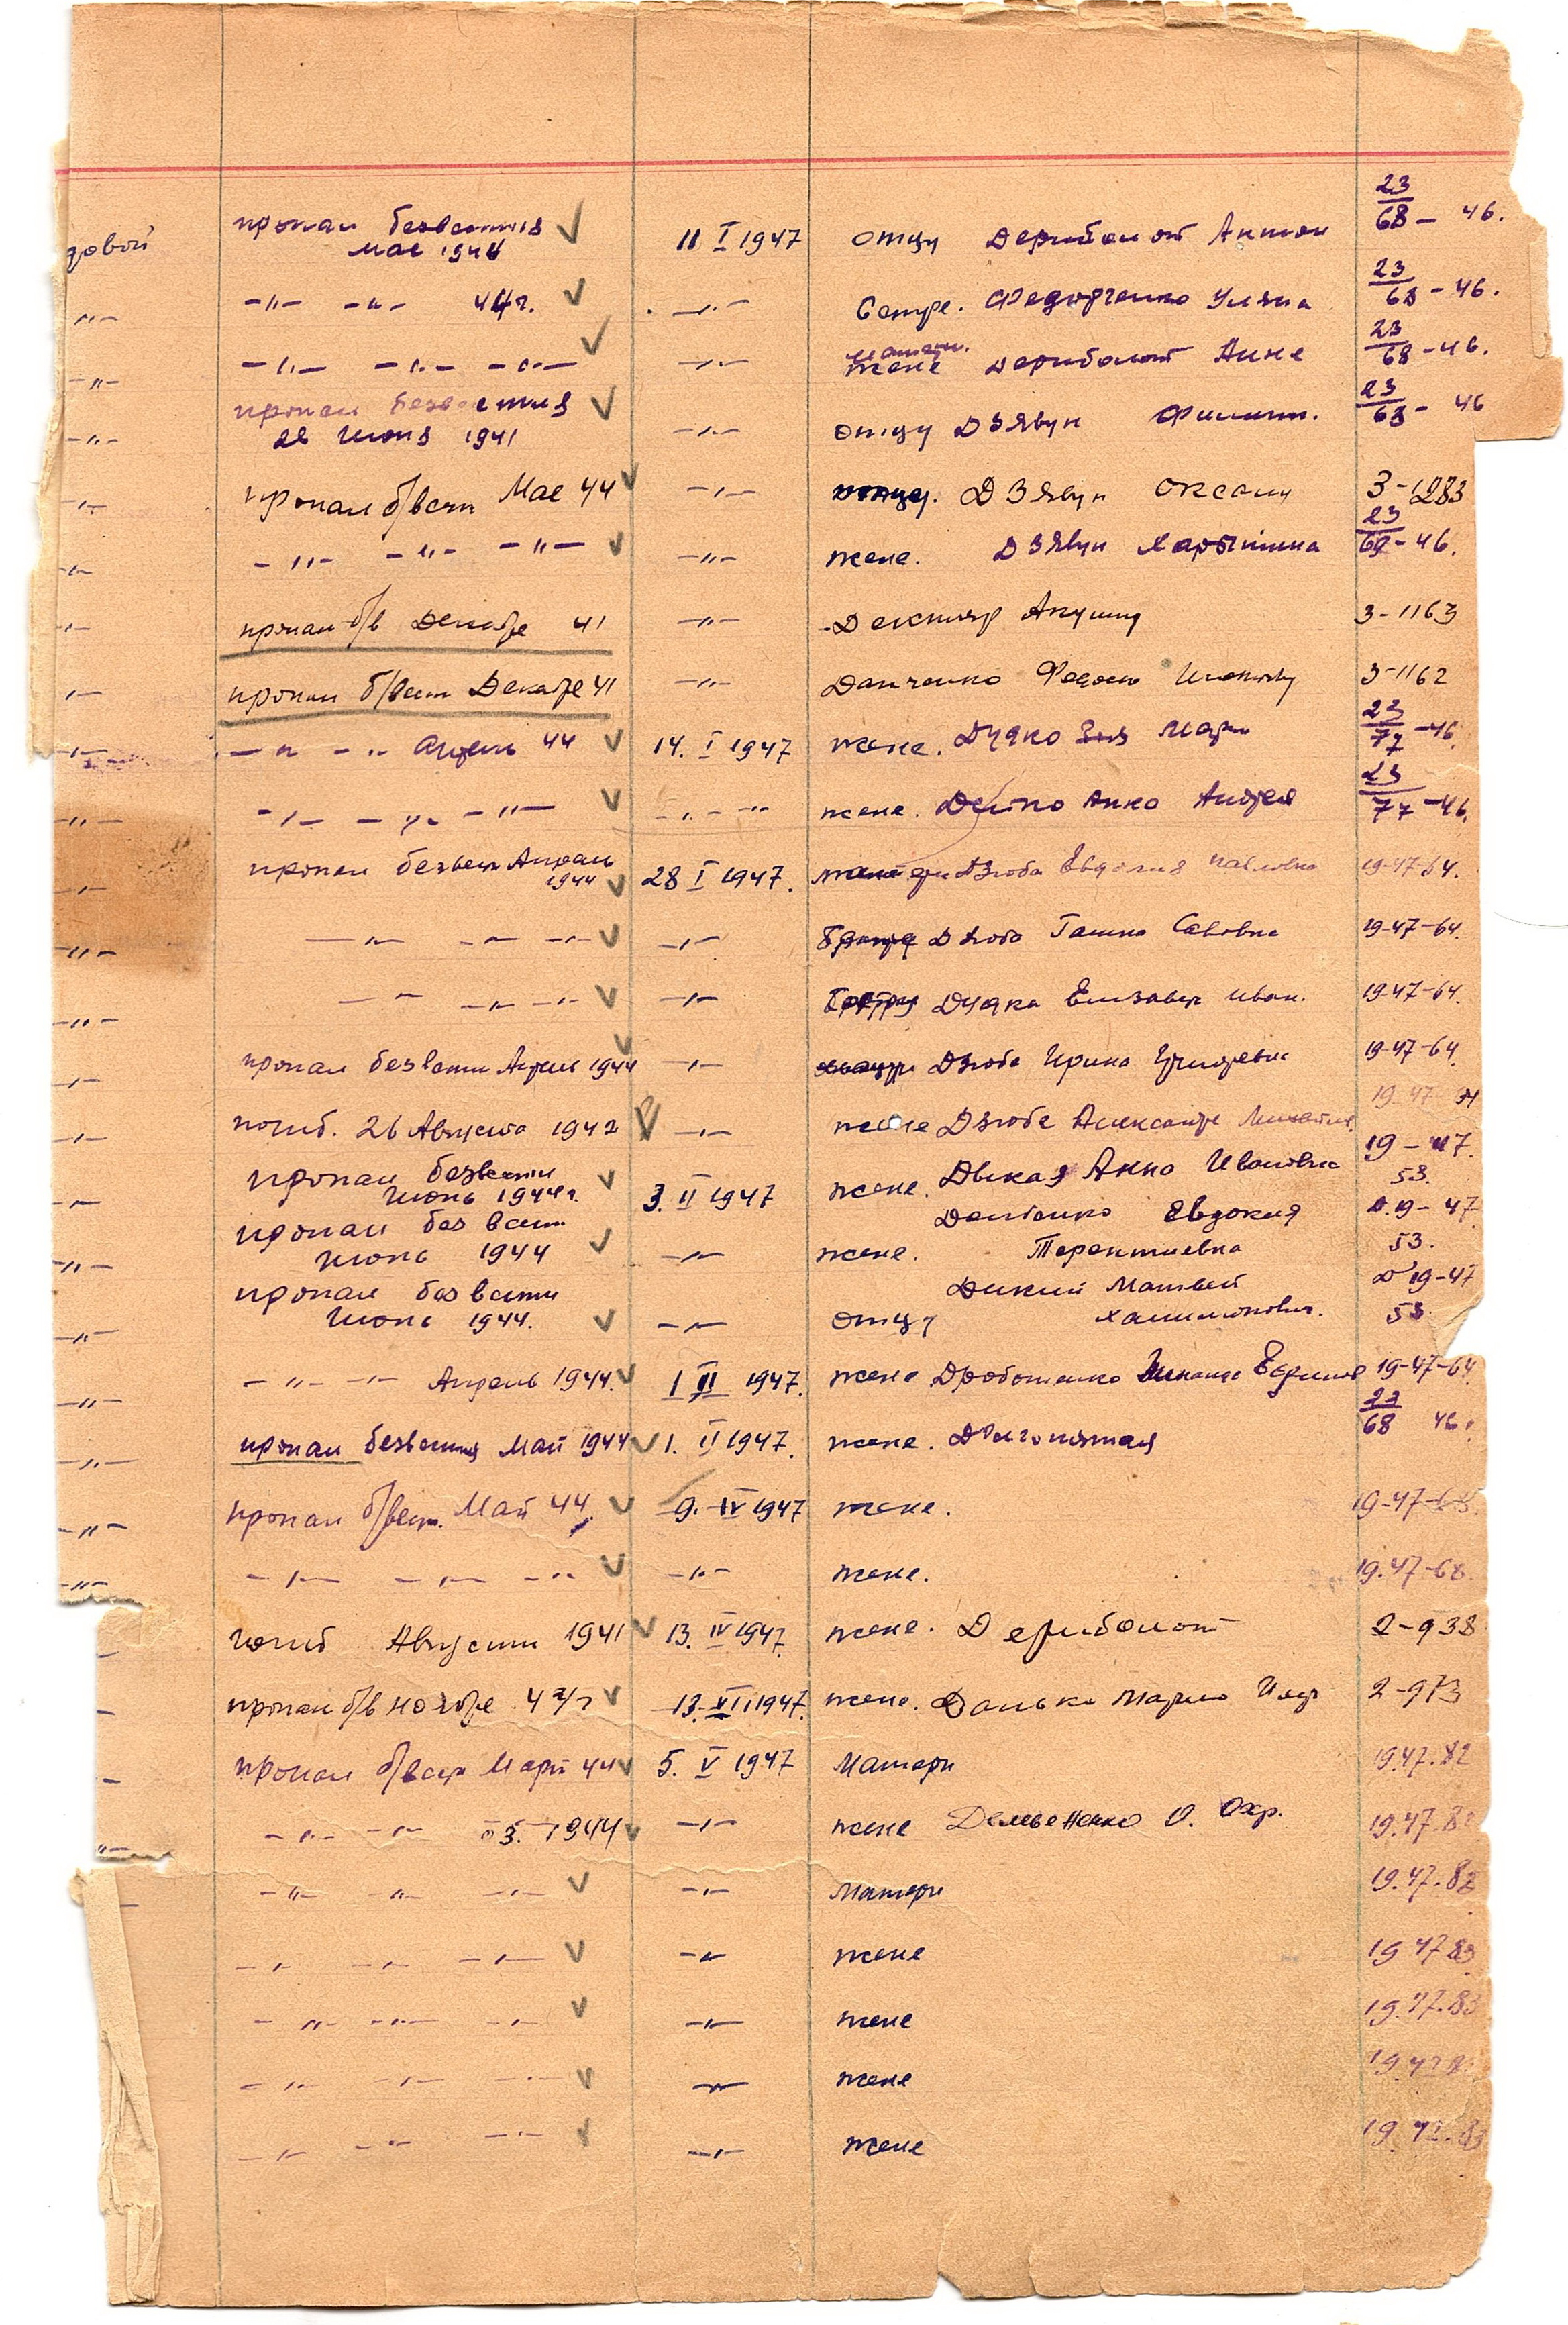 довой пропал безвестия ✓ 23
мае 1944 11 I 1947 отцу Дериболот Антон 68 – 46.
–"– –"– –"– 44г. ✓ –"– Сестре. Федорченко Ульяна 23/68 – 46.
–"– –"– –"– –"– ✓ –"– матери. жене Дериболот Анне 23/68 – 46.
–"– пропал безвестия ✓ 23
28 Июня 1941 –"– отцу Дзявун Филипп. 68 – 46
–"– пропал б/вест Мае 44 ✓ –"– Дзявун Оксану 3–1283
–"– –"– –"– –"– ✓ –"– жене. Дзявун Харытина 23/68 – 46.
–"– пропал б/в Декабре 41 –"– Декптяр 3–1163
–"– пропал б/вест Декабре 41 –"– Данченко 3–1162
–"– –"– –"– Апрель 44 ✓ 14. I 1947 жене. Дудко 23/77 – 46.
–"– –"– –"– –"– ✓ –"– –"– жене. Анно Андрея 23/77 – 46.
–"– пропал безвест Апрель
1944 ✓ 28 I 1947. матери Дзюба Евдокия Павловна 19–47–64.
–"– –"– –"– –"– ✓ –"– Дзюба Ганна Савовна 19–47–64.
–"– –"– –"– –"– ✓ –"– Дудка Елизавет Иван. 19–47–64.
–"– пропал безвести Апрель 1944 ✓ –"– Дзюба Ирина Григоревна 19–47–64.
–"– погиб. 26 Августа 1942 ✓ –"– жене Дзюбе Александре 19–47
пропал безвести 19 – 47.
–"– Июнь 1944г. ✓ 3. II 1947 жене. Дикая Анна Ивановна 53.
пропал без вест. Евдокия Д.19– 47
–"– Июнь 1944 ✓ –"– жене. Терентиевна 53.
пропал без вести Дикий Матвей Д 19–47
–"– Июнь 1944. ✓ –"– отцу 53.
–"– –"– –"– Апрель 1944. ✓ 1 II 1947. жене Дроботенко 19–47–64
–"– пропал безвестия Май 1944 ✓ 1. II 1947. жене. Долгопятая 23/68 46.
–"– пропал б/вест. Май 44. ✓ 9. IV 1947 жене. 19–47–68.
–"– –"– –"– –"– ✓ –"– жене. 19.47–68.
– погиб Августе 1941 ✓ 13. IV 1947. жене. Дериболот 2–938
– пропал б/в ноябре ✓ 13. VII 1947. жене. Данько Марие 2–973
– пропал б/вест Март 44 ✓ 5. V 1947 Матери 19.47.82
–"– –"– –"– 3. 1944 ✓ –"– жене Демьяненко О. Охр. 19.47.8
– –"– –"– –"– ✓ –"– Матери 19.47.82
–"– –"– –"– ✓ –"– жене 19 47 83
–"– –"– –"– ✓ –"– жене 19.47.83
–"– –"– –"– ✓ –"– жене 19 47 8
–"– –"– –"– ✓ –"– жене 19.47.83